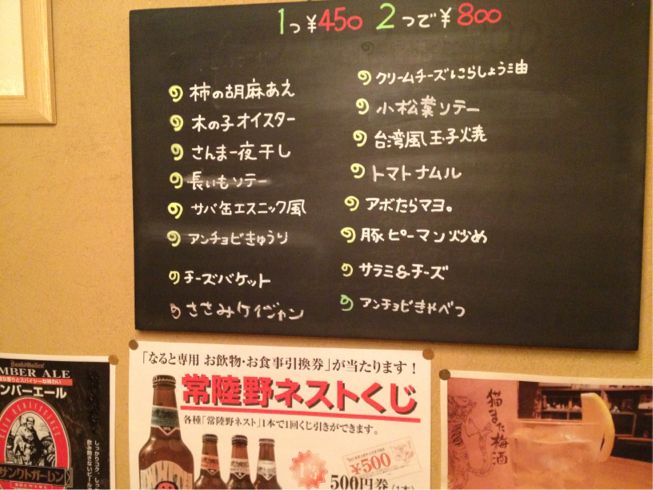 1つ¥450 2つで¥800
柿の胡麻あえ
木の子オイスター
さんま一夜干し
長いもソテー
サバ缶エスニック風
アンチョビきゅうり
チーズバケット
ささみケイジャン
クリームチーズにらしょう油
小松菜ソテー
台湾風玉子焼
トマトナムル
アボたらマヨ。
豚ピーマン炒め
サラミ&チーズ
アンチョビきゃべつ
MBER ALE
ンバーエール
サンクトガーレン
「なると専用 お飲物・お食事引換券」が当たります!
常陸野ネストくじ
各種「常陸野ネスト」1本で1回くじ引きができます。
¥500
500円券
猫また梅酒